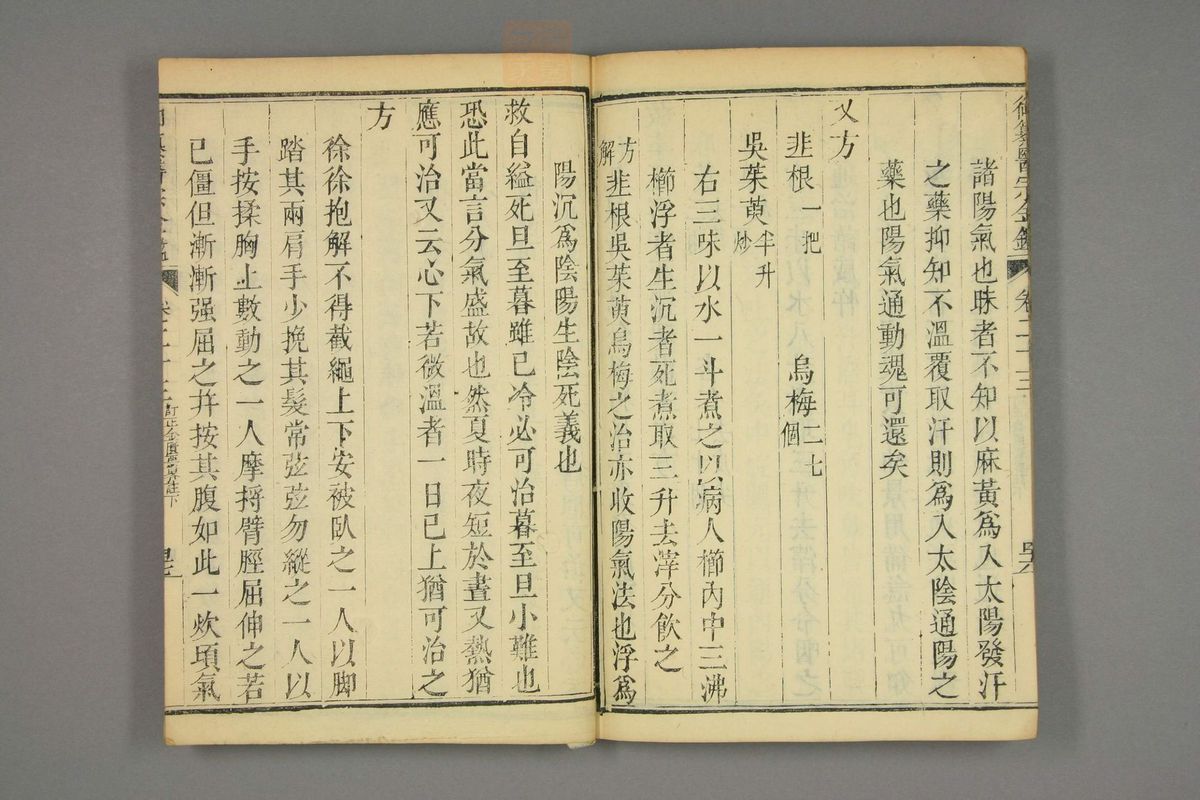 諸陽氣也昧者不知以麻黃爲入太陽發汗
之藥抑知不溫覆取汗則爲入太陰通陽之
藥也陽氣通動魂可還矣
又方
韭根一把　烏梅二七個
吳茱萸半升炒
右三味以水一斗煮之以病人櫛內中三沸
櫛浮者生沉者死煮取三升去滓分飲之
方解韭根吳茱萸烏梅之治亦收陽氣法也浮爲
陽沉爲陰陽生陰死義也
救自縊死旦至暮雖已冷必可治暮至旦小難也
恐此當言分氣盛故也然夏時夜短於晝又熱猶
應可治又云心下若微溫者一日已上猶可治之
方
徐徐抱解不得截繩上下安被臥之一人以脚
踏其兩肩手少挽其髮常弦弦勿縱之一人以
手按揉胸上數動之一人摩捋臂脛屈伸之若
已僵但漸漸强屈之幷按其腹如此一炊頃氣
卷二十三